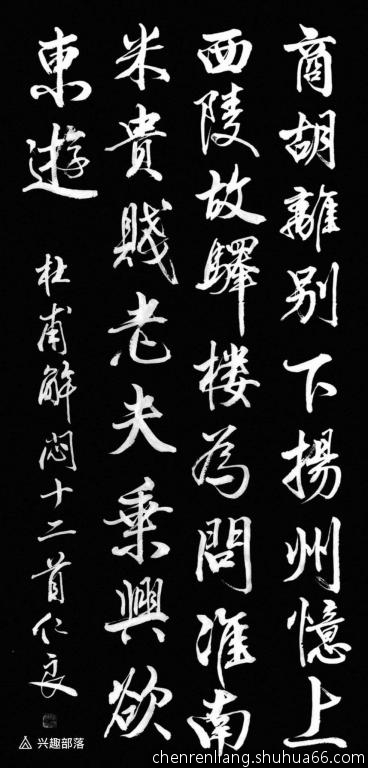 商胡離别下揚州憶上
西陵故驛楼為問淮南
米貴賤老夫乗興欲
東遊
杜甫解悶十二首仁良
兴趣部落
chenrenliang.shuhua66.com